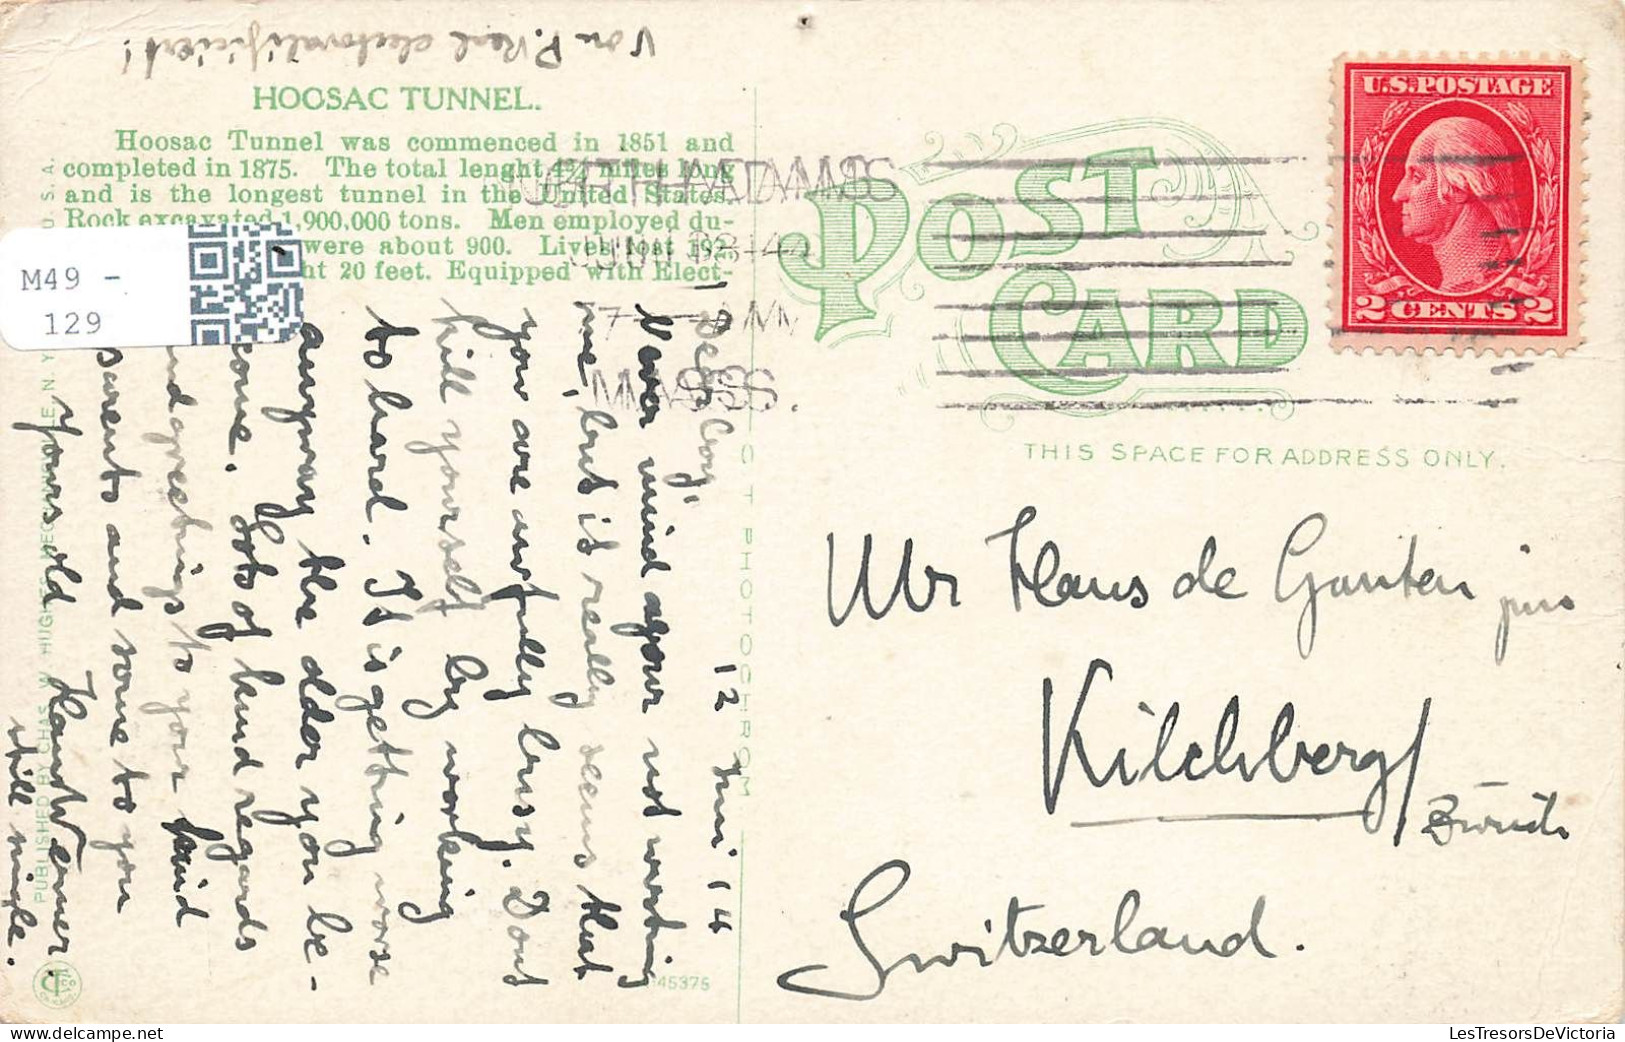 HOOSAC TUNNEL.
Hoosac Tunnel was commenced in 1851 and
completed in 1875. The total lenght 4¾ miles long
and is the longest tunnel in the United States.
Rock excavated 1,900,000 tons. Men employed du-
were about 900. Lives lost 192
ht 20 feet. Equipped with Elect-
M49 -
129
NORTH ADAMS
JUN 13
7 - AM
MASS.
POST
CARD
THIS SPACE FOR ADDRESS ONLY.
U.S. POSTAGE
2 CENTS 2
12 Juni 14
Dear boy,
Never mind your not writing
me, but it really seems that
you are awfully busy. Dont
kill yourself by working
to hard. It is getting worse
anyway the older you be-
come. Lots of kind regards
and greetings to your kind
parents and some to you
Yours old Hans Werner.
still single.
Mr Hans de Ganten jun
Kilchberg/
Zürich
Switzerland.
PUBLISHED BY CHAS. W. HUGHES, MECHANICVILLE, N. Y.
U. S. A.
C T PHOTOCHROM
45375